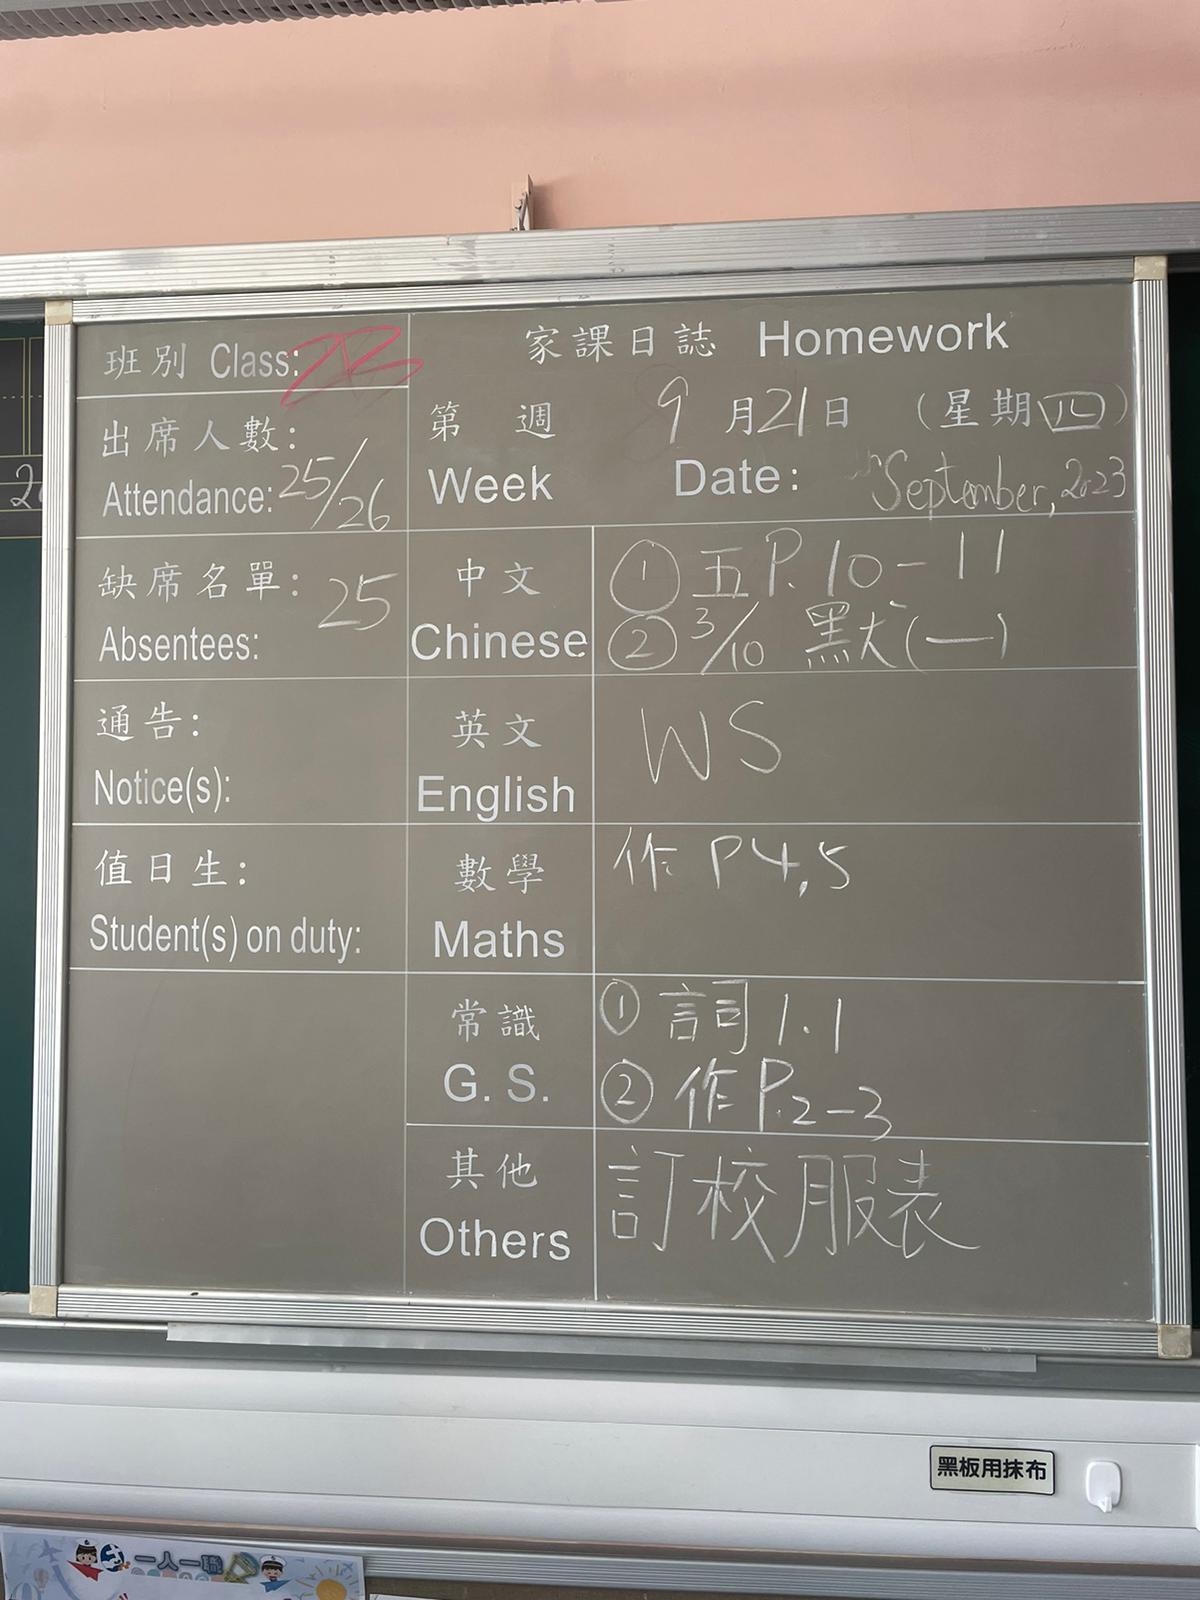 班別 Class:
家課日誌 Homework
出席人數:
Attendance: 25/26
第 週 9月21日 (星期四)
Week Date: September, 2023
缺席名單: 25
Absentees:
中文
Chinese
① 五 P. 10-11
② 3/10 默(一)
通告:
Notice(s):
英文
English
WS
值日生:
Student(s) on duty:
數學
Maths
作 P4,5
常識
G. S.
① 詞 1.1
② 作 P.2-3
其他
Others
訂校服表
黑板用抹布
一人一職